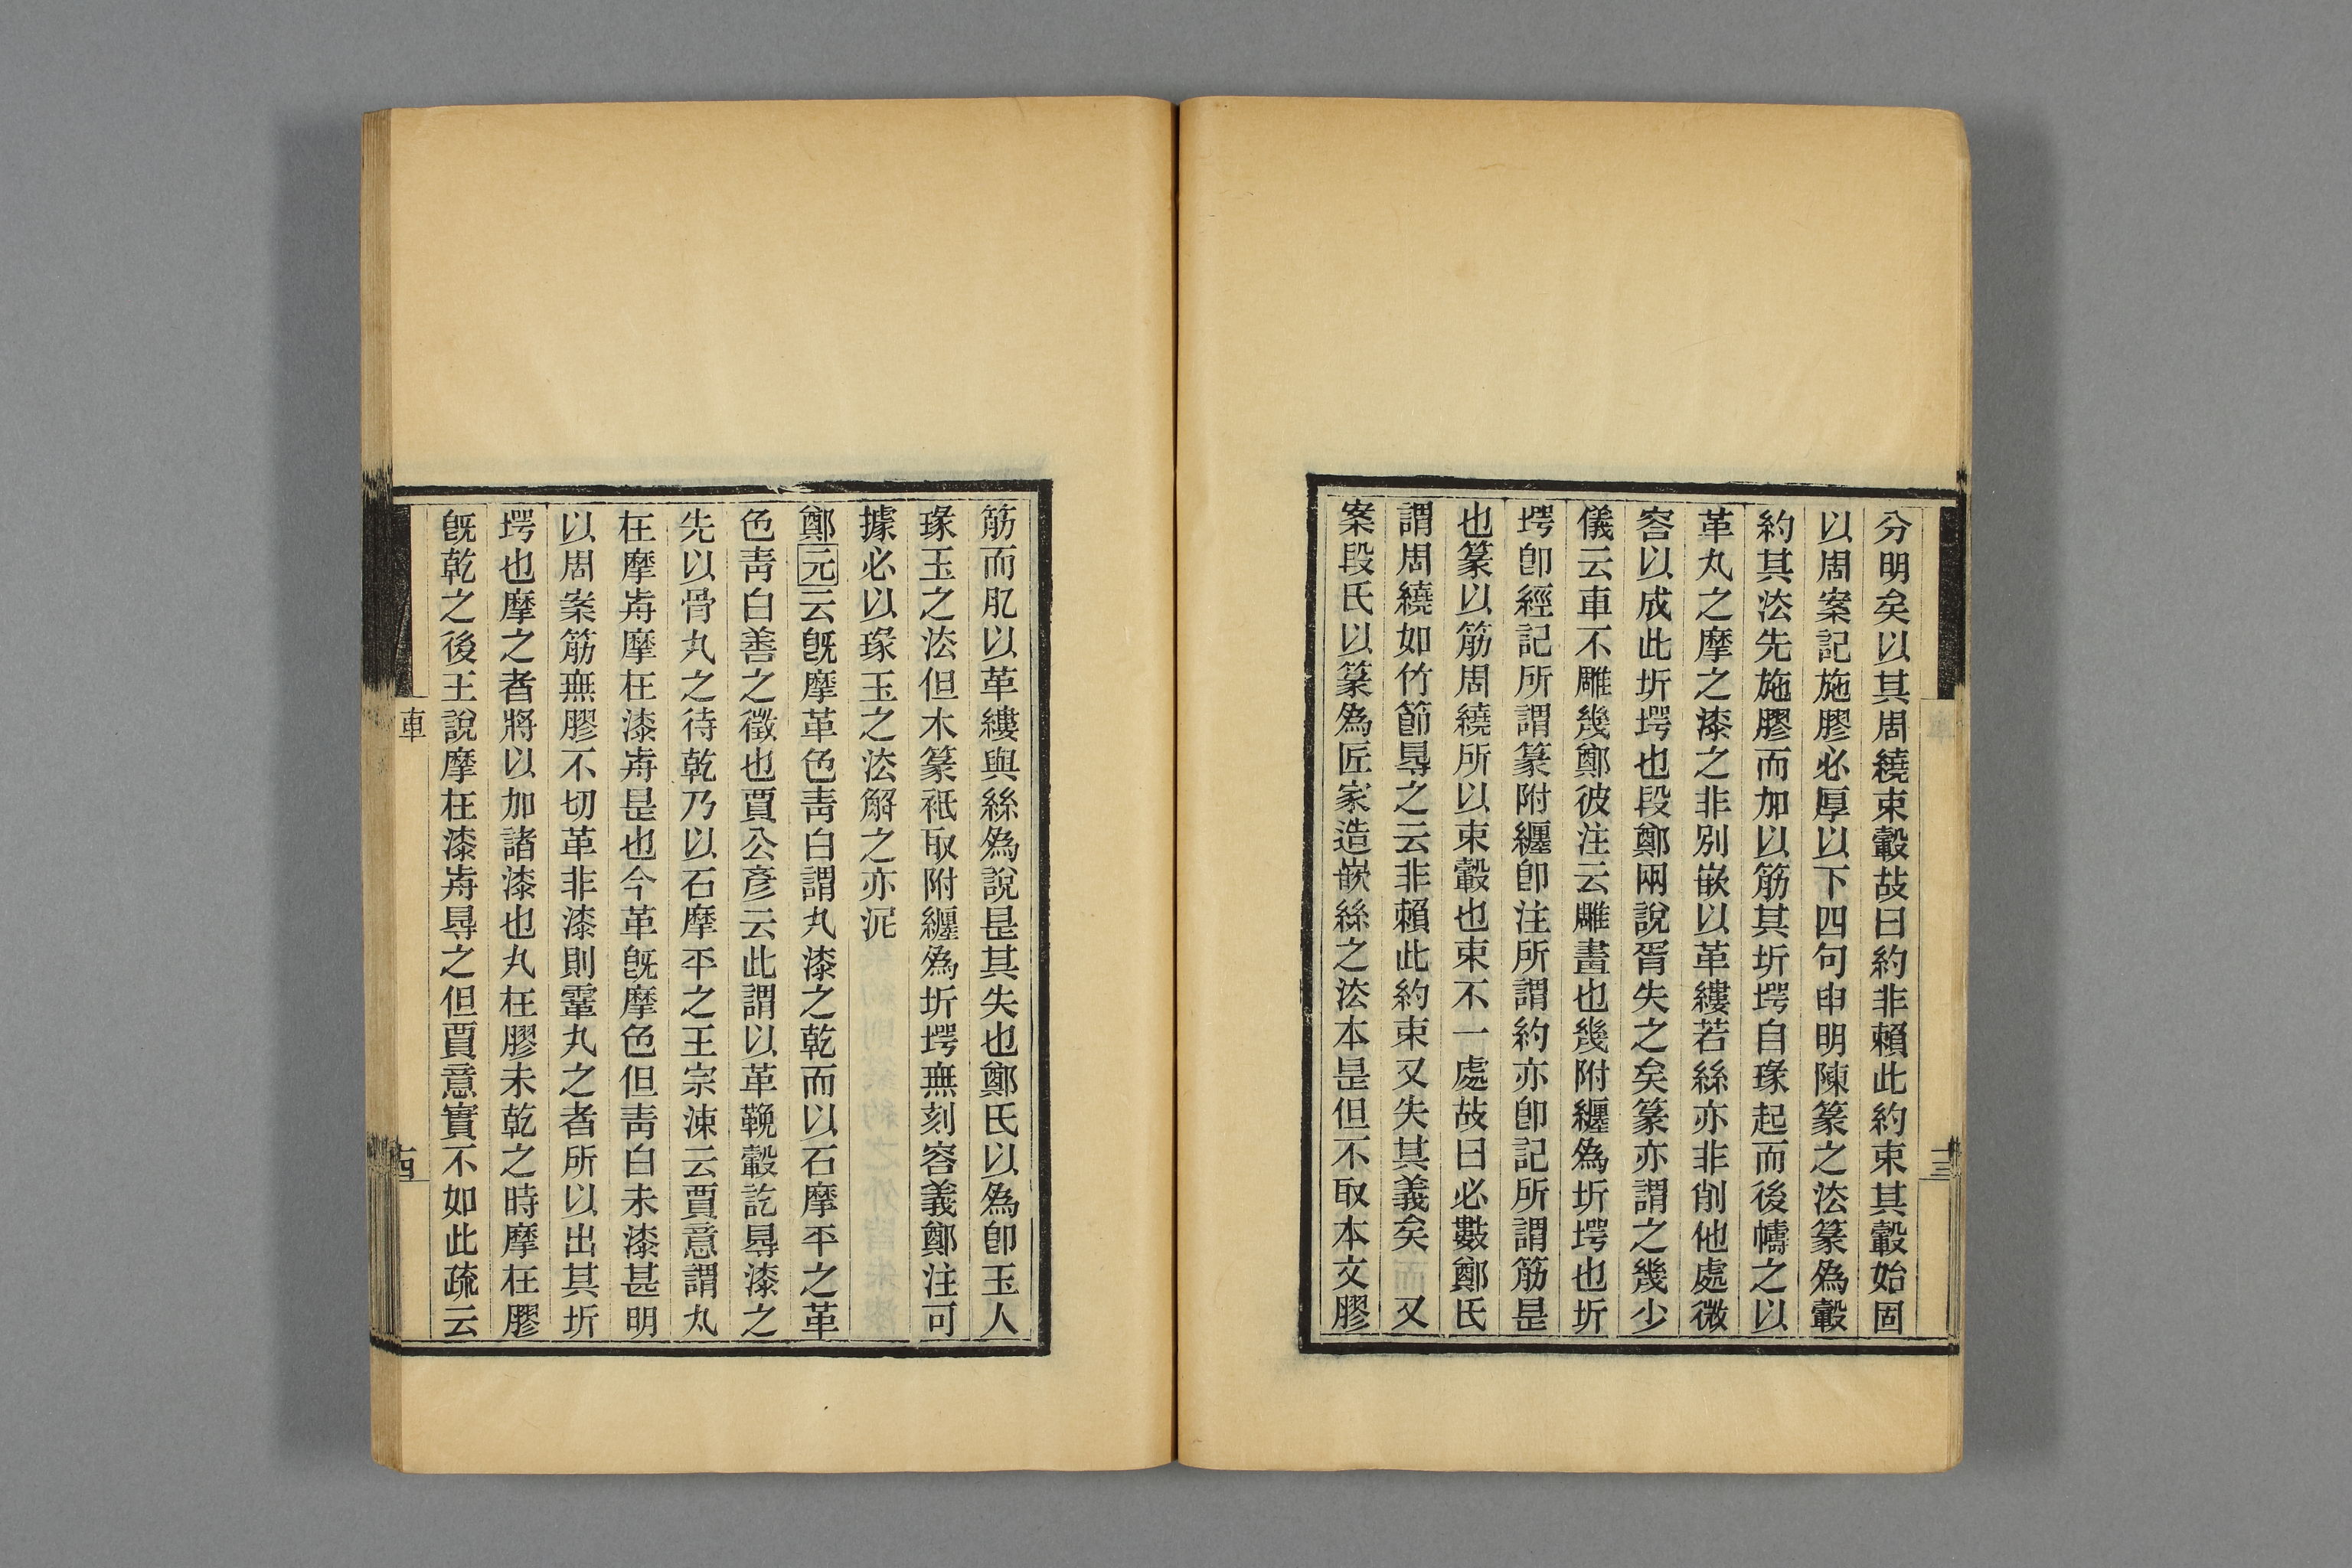 分明矣以其周繞束轂故曰約非賴此約束其轂始固
以周案記施膠必厚以下四句申明陳篆之法篆為轂
約其法先施膠而加以筋其圻堮自瑑起而後幬之以
革丸之摩之漆之非別嵌以革縷若絲亦非削他處微
容以成此圻堮也段鄭兩說胥失之矣篆亦謂之幾少
儀云車不雕幾鄭彼注云雕畫也幾附纏為圻堮也圻
堮卽經記所謂篆附纏卽注所謂約亦卽記所謂筋是
也篆以筋周繞所以束轂也束不一處故曰必數鄭氏
謂周繞如竹節㝵之云非賴此約束又失其義矣而又
案段氏以篆為匠家造嵌絲之法本是但不取本文膠
筋而肊以革縷與絲為說是其失也鄭氏以為卽玉人
瑑玉之法但木篆衹取附纏為圻堮無刻容義鄭注可
據必以瑑玉之法解之亦泥
鄭元云旣摩革色靑白謂丸漆之乾而以石摩平之革
色靑白善之徵也賈公彥云此謂以革鞔轂訖㝵漆之
先以骨丸之待乾乃以石摩平之王宗涑云賈意謂丸
在摩歬摩在漆歬是也今革旣摩色但靑白未漆甚明
以周案筋無膠不切革非漆則鞷丸之者所以出其圻
堮也摩之者將以加諸漆也丸在膠未乾之時摩在膠
旣乾之後王說摩在漆歬㝵之但賈意實不如此疏云
車
十四
十三